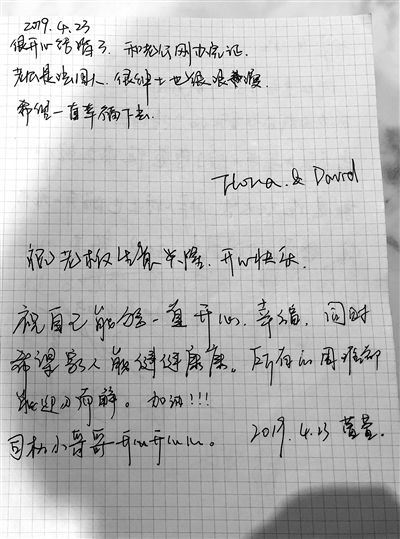 2019.4.23
很开心结婚了. 和老公刚办完证.
老公是法国人. 很绅士也很浪漫.
希望一直幸福下去.
& David
祝老板生意兴隆. 开心快乐.
祝自己能够一直开心. 幸福. 同时
希望家人能健健康康。所有的困难都
能迎刃而解。加油!!!
司机小哥哥开心开心。
2019.4.23 萱萱.